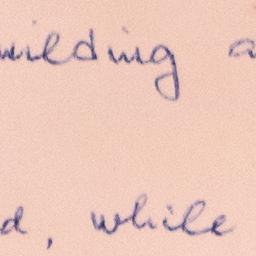 uilding a
d, while